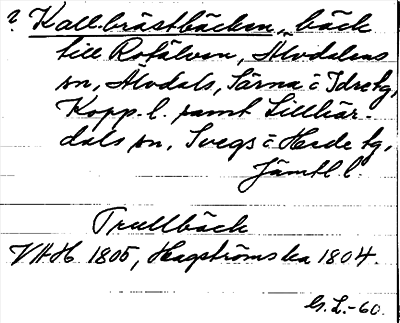 ? Kallbrästbäcken, bäck
till Rotälven, Älvdalens
sn, Älvdals, Särna o Idre tg,
Kopp. l. samt Lillhär-
dals sn, Svegs o Hede tg,
Jämtl l.
Trullbäck
VHH 1805, Hagströms ka 1804.
G. L. -60.